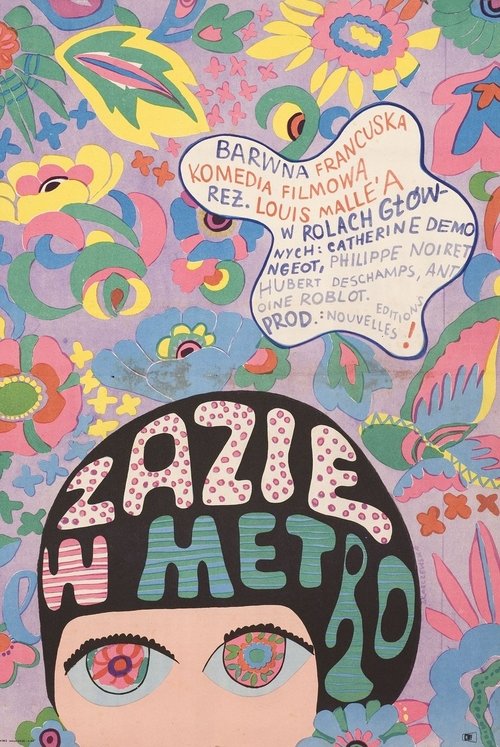 BARWNA FRANCUSKA
KOMEDIA FILMOWA
REŻ. LOUIS MALLE'A
W ROLACH GŁÓW-
NYCH: CATHERINE DEMO
NGEOT, PHILIPPE NOIRET
HUBERT DESCHAMPS, ANT
OINE ROBLOT.
PROD.: NOUVELLES EDITIONS!
ZAZIE
W METRO